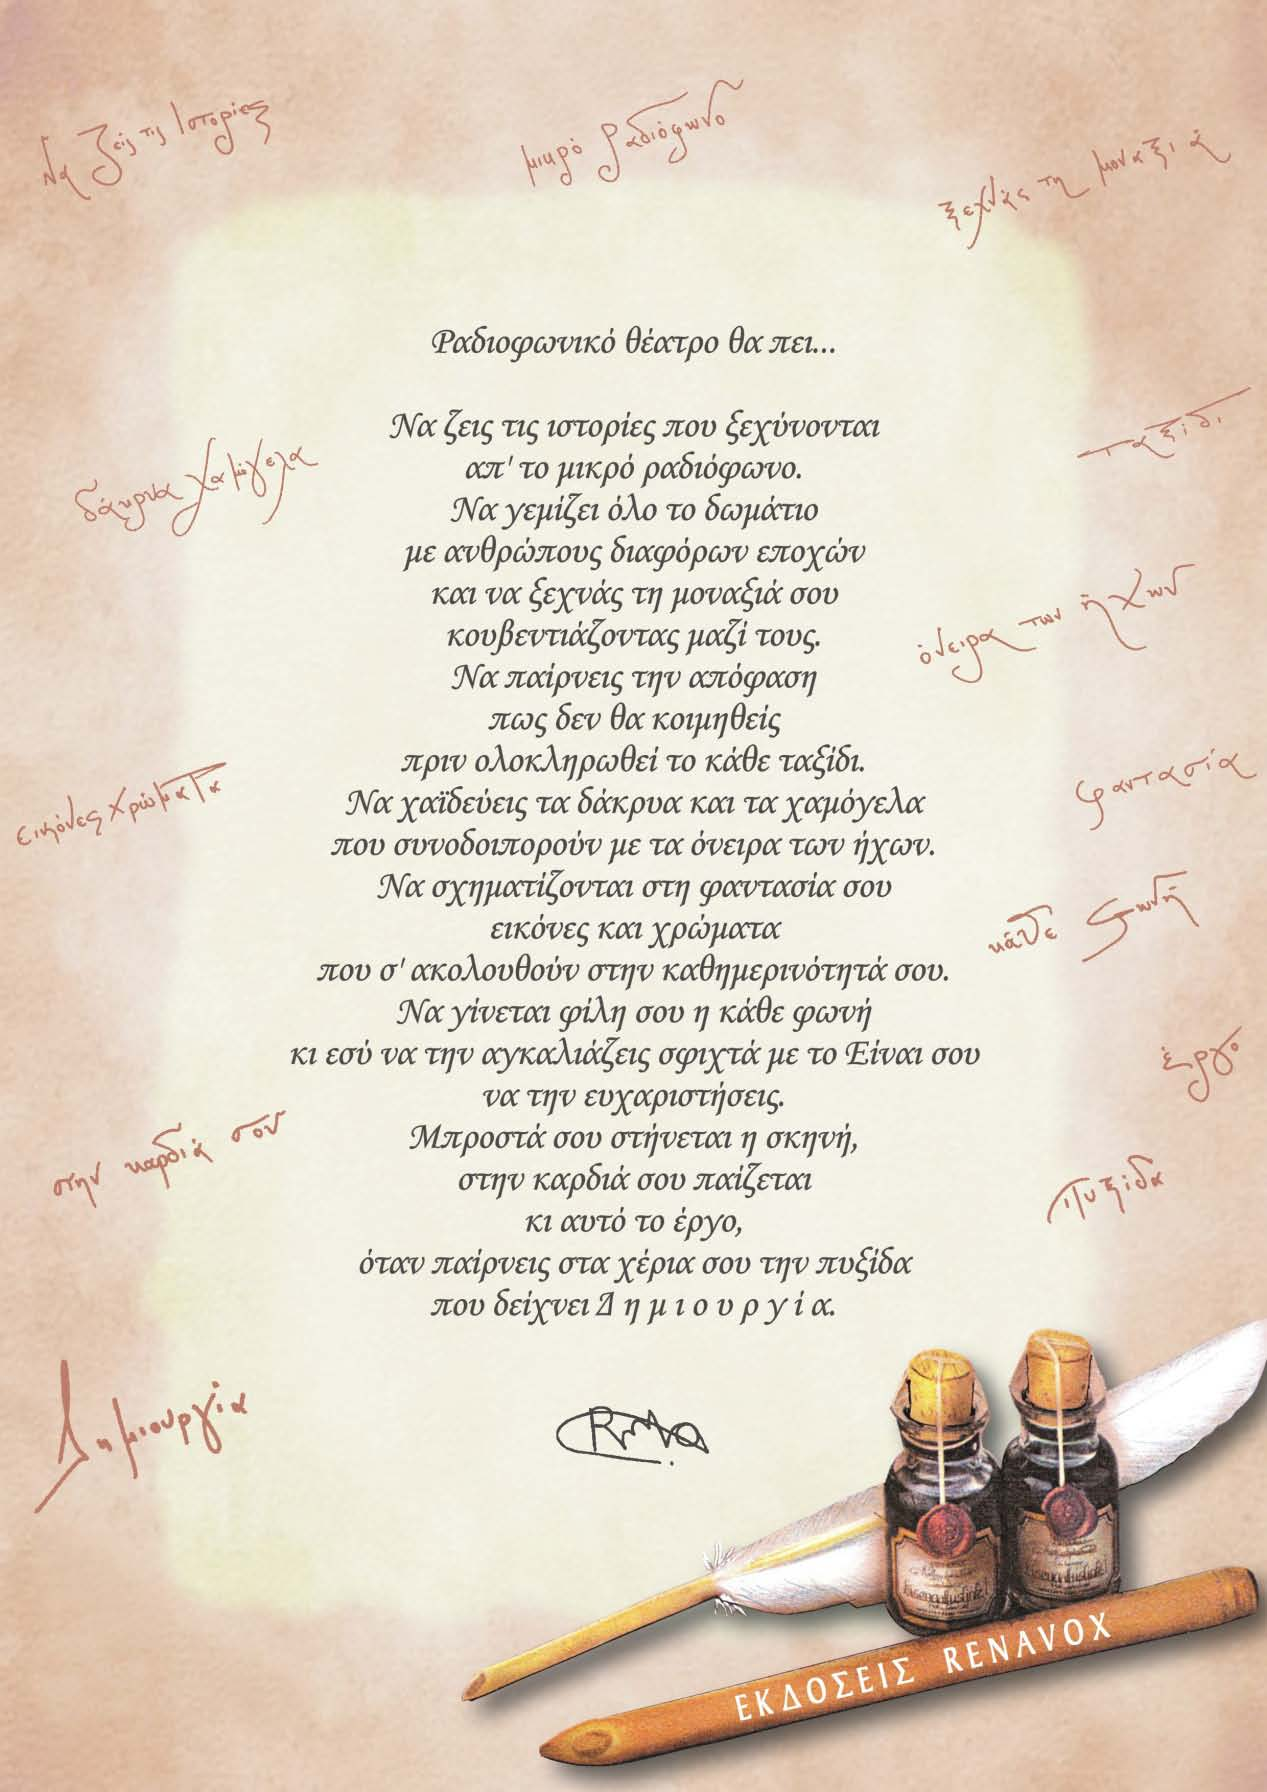 Να ζεις τις Ιστορίες
μικρό ραδιόφωνο
ξεχνάς τη μοναξιά
Ραδιοφωνικό θέατρο θα πει...
Να ζεις τις ιστορίες που ξεχύνονται
απ' το μικρό ραδιόφωνο.
Να γεμίζει όλο το δωμάτιο
με ανθρώπους διαφόρων εποχών
και να ξεχνάς τη μοναξιά σου
κουβεντιάζοντας μαζί τους.
Να παίρνεις την απόφαση
πως δεν θα κοιμηθείς
πριν ολοκληρωθεί το κάθε ταξίδι.
Να χαϊδεύεις τα δάκρυα και τα χαμόγελα
που συνοδοιπορούν με τα όνειρα των ήχων.
Να σχηματίζονται στη φαντασία σου
εικόνες και χρώματα
που σ' ακολουθούν στην καθημερινότητά σου.
Να γίνεται φίλη σου η κάθε φωνή
κι εσύ να την αγκαλιάζεις σφιχτά με το Είναι σου
να την ευχαριστήσεις.
Μπροστά σου στήνεται η σκηνή,
στην καρδιά σου παίζεται
κι αυτό το έργο,
όταν παίρνεις στα χέρια σου την πυξίδα
που δείχνει Δ η μ ι ο υ ρ γ ί α.
ταξίδι
δάκρυα χαμόγελα
όνειρα των ήχων
εικόνες χρώματα
φαντασία
κάθε φωνή
έργο
στην καρδιά σου
πυξίδα
Δημιουργία
ΕΚΔΟΣΕΙΣ RENAVOX